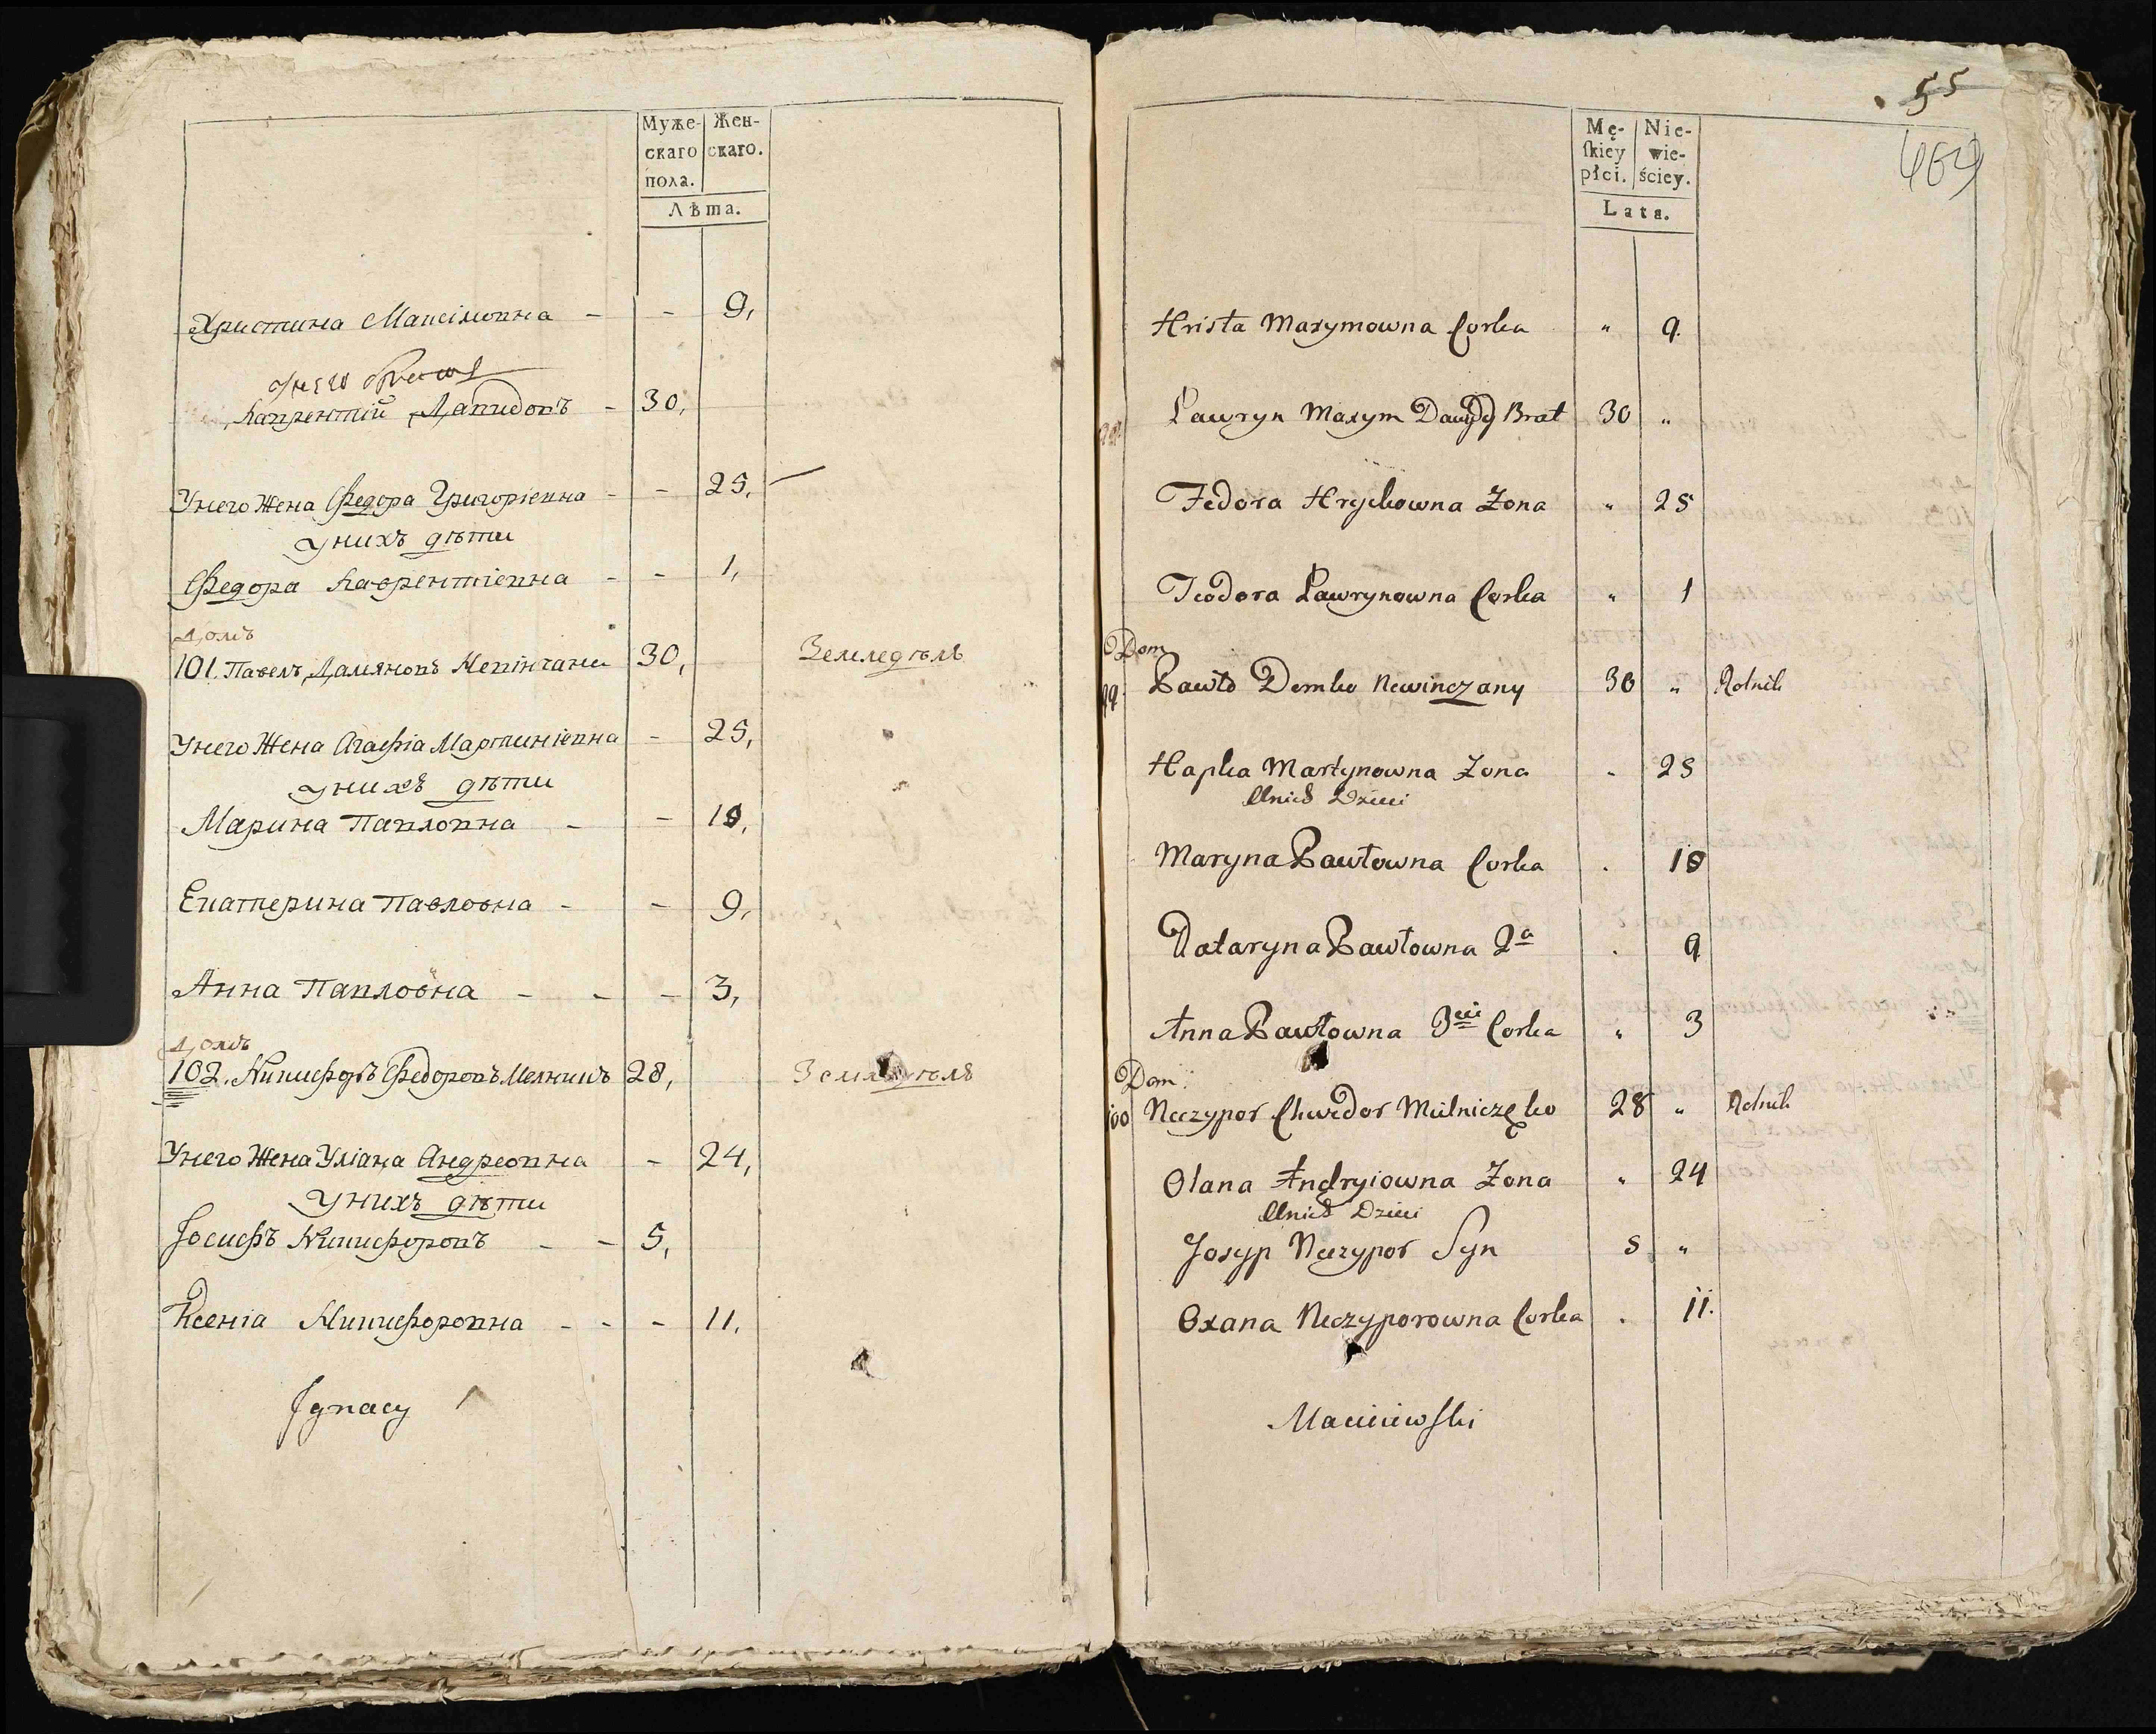 Муже-
скаго
пола.
Жен-
скаго.
Лѣта.
Христина Максімовна - - 9,
Лаврентій Давидовъ - 30,
Унего Жена Федора Григоріевна - - 25,
Унихъ дѣти
Федора Лаврентіевна - - 1,
Домъ
101. Павелъ Дамяновъ Невінчани 30, Земледѣль
Унего Жена Агафіа Мартиніевна - 25,
Унихъ дѣти
Марина Павловна - - 10,
Екатерина Павловна - - 9,
Анна Павловна - - - 3,
Домъ
102. Никифоръ Федоровъ Мелникъ 28, Земледѣль
Унего Жена Уліана Андреовна - 24,
Унихъ дѣти
Іосифъ Никифоровъ - - 5,
Ксеніа Никифоровна - - - 11,
Ignacy
55
469
Mę-
skiey
płci.
Nie-
wie-
ściey.
Lata.
Hrista Maxymowna Corka " 9.
Lawryn Maxym Dawydy Brat 30 "
Fedora Hryckowna Zona " 25
Teodora Lawrynowna Corka " 1
Dom
99. Pawło Demko Newinczany 30 " Rolnik
Hapka Martynowna Zona . 25
Unich Dzieci
Maryna Pawłowna Corka . 10
Kataryna Pawłowna 2a . 9
Anna Pawłowna 3cia Corka " 3
Dom
100 Neczypor Chwedor Mielniczęko 28 " Rolnik
Olana Andryiowna Zona " 24
Unich Dzieci
Josyp Neczypor Syn 5 "
Oxana Neczyporowna Corka . 11.
Maciiewski